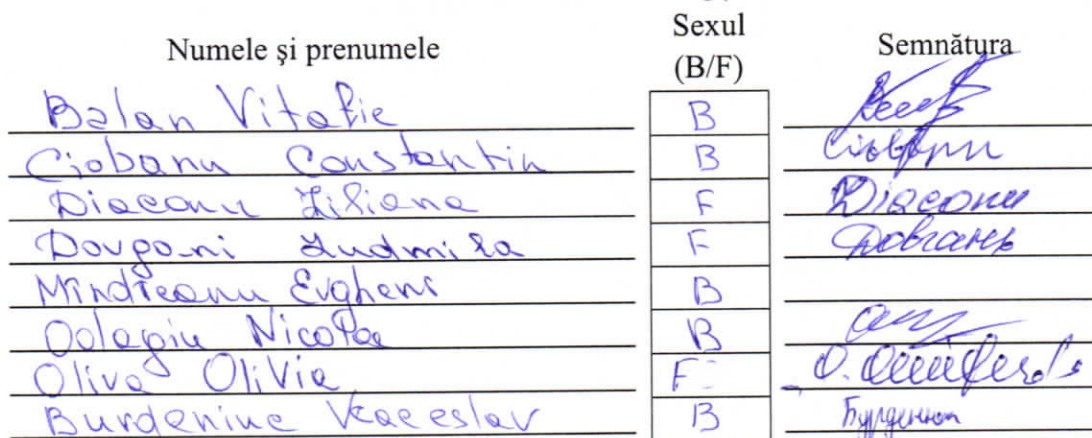 Numele și prenumele Sexul (B/F) Semnătura
Balan Vitalie B
Ciobanu Constantin B Ciobanu
Diaconu Liliana F Diaconu
Dovgani Ludmila F Довгань
Mîndreanu Evgheni B
Odagiu Nicolae B
Oliva Olivia F O.
Burdeniuc Veaceslav B